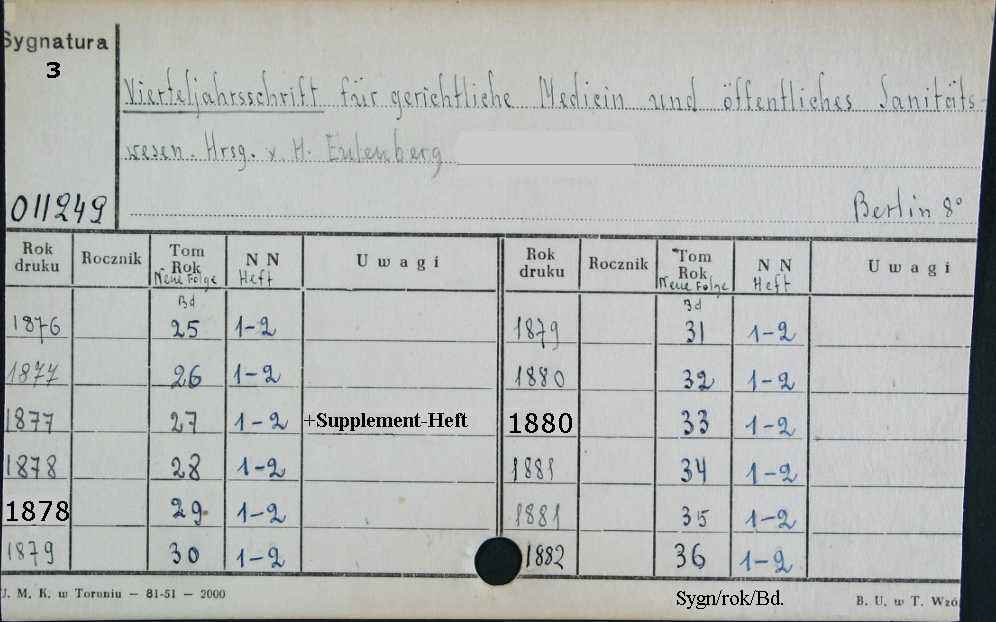 Sygnatura
3
Vierteljahrsschrift für gerichtliche Medicin und öffentliches Sanitäts-
wesen. Hrsg. v H. Eulenberg
011249
Berlin 8°
Rok druku Rocznik Tom Rok Neue Folge N N Heft Uwagi Rok druku Rocznik Tom Rok Neue Folge N N Heft Uwagi
Bd Bd
1876 25 1-2 1879 31 1-2
1877 26 1-2 1880 32 1-2
1877 27 1-2 +Supplement-Heft 1880 33 1-2
1878 28 1-2 1881 34 1-2
1878 29 1-2 1881 35 1-2
1879 30 1-2 1882 36 1-2
J. M. K. w Toruniu — 81-51 — 2000 Sygn/rok/Bd. B. U. w T. Wzó